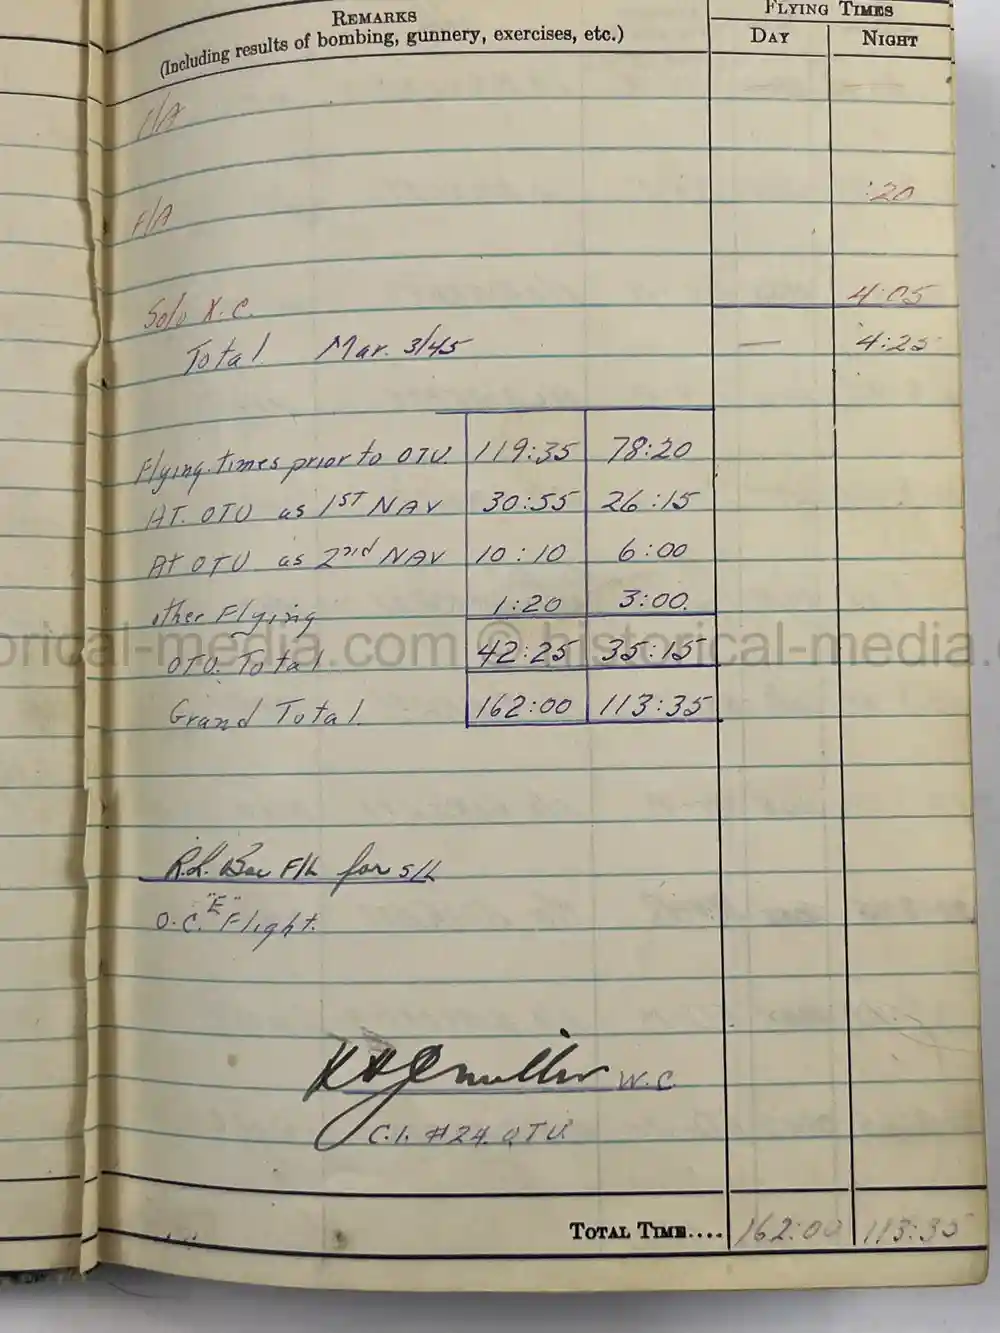 REMARKS
(Including results of bombing, gunnery, exercises, etc.)
FLYING TIMES
DAY NIGHT
F/A
:20
F/A
4:05
Solo X.C.
Total Mar. 3/45 — 4:25
Flying times prior to OTU. 119:35 78:20
AT. OTU as 1ST NAV 30:55 26:15
At OTU as 2nd NAV 10:10 6:00
other Flying 1:20 3:00
historical-media.com © historical-media.
OTU. Total 42:25 35:15
Grand Total 162:00 113:35
R.L. F/L for S/L
O.C. "E" Flight.
W.C.
C.I. #24 OTU
TOTAL TIME.... 162:00 113:35